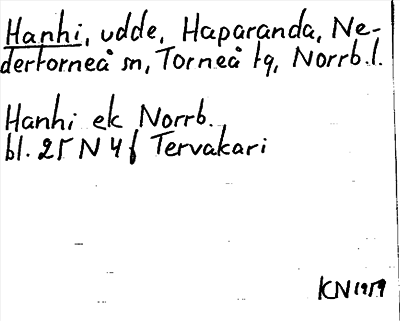 Hanhi, udde, Haparanda, Ne-
dertorneå sn, Torneå tg, Norrb.l.
Hanhi ek Norrb.
bl. 25 N 4 f Tervakari
KN 1959